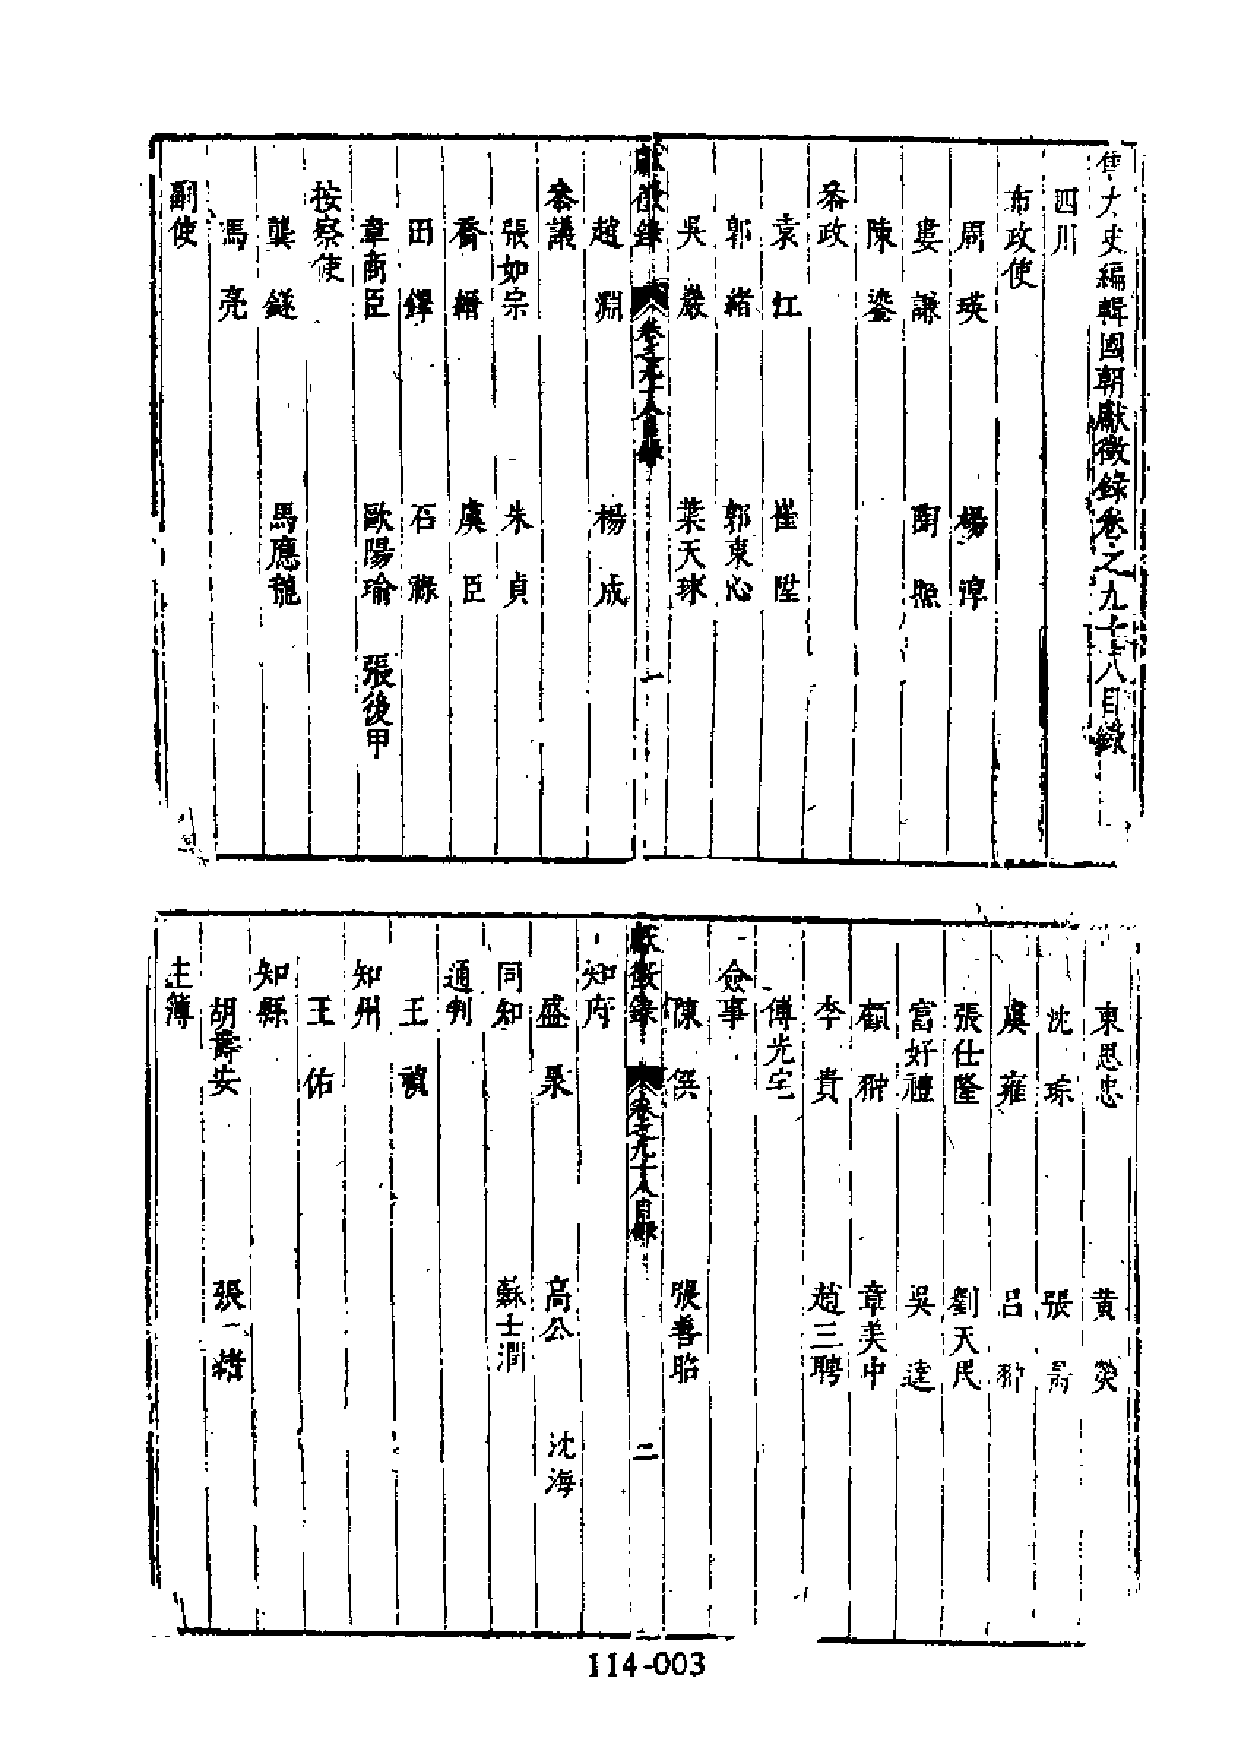 焦太史編輯國朝獻徵錄卷之九十八目錄
四川
布政使
周瑛 楊淳
婁謙 劉煦
陳鎏
叅政
袁江 崔陞
郭緒 郭東心
吳巖 葉天球
獻徵錄 卷之九十八目錄 一
趙淵 楊成
叅議
張如宗 朱貞
喬縉 虞臣
田鐸 石祿
韋商臣 歐陽瑜 張後甲
按察使
龔鎹 馬應龍
馬亮
副使
東思忠 黃榮
沈琮 張昺
虞雍 呂翀
張仕隆 劉天民
富好禮 吳逵
顧翀 章美中
李貴 趙三聘
傅光宅
僉事
陳僎 張善昭
獻徵錄 卷之九十八目錄 二
知府
盛杲 高公 沈海
同知 蘇士潤
通判
王禎
知州
王佑
知縣
胡壽安 張一
主簿
114-003